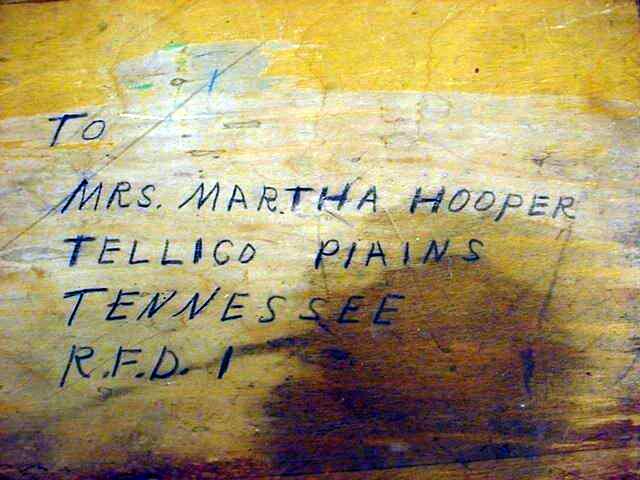 TO
MRS. MARTHA HOOPER
TELLICO PlAINS
TENNESSEE
R.F.D. 1